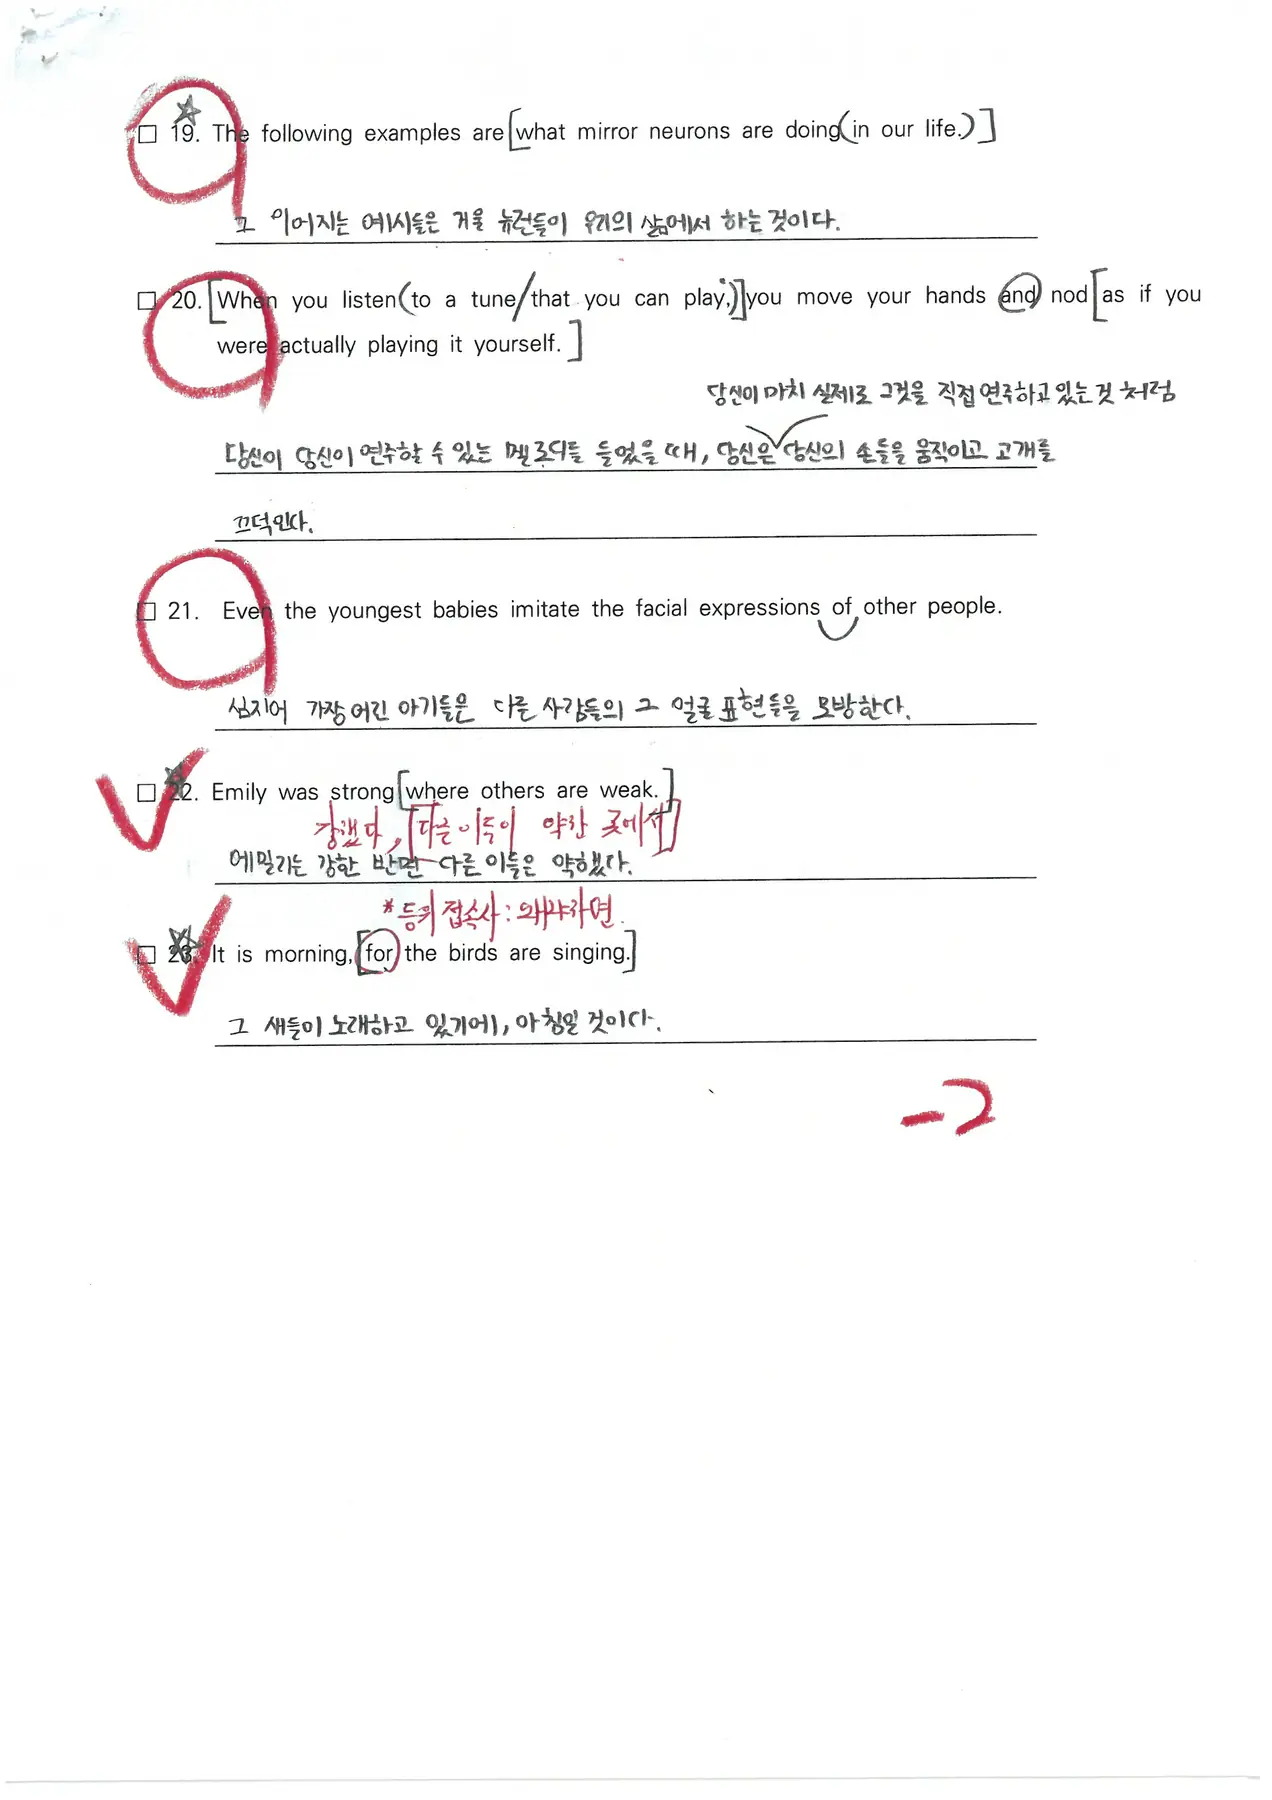 □ 19. The following examples are [what mirror neurons are doing (in our life.)]
그 이어지는 예시들은 거울 뉴런들이 우리의 삶에서 하는 것이다.
□ 20. [When you listen (to a tune / that you can play,)] you move your hands and nod [as if you
were actually playing it yourself.]
당신이 마치 실제로 그것을 직접 연주하고 있는 것 처럼
당신이 당신이 연주할 수 있는 멜로디를 들었을 때, 당신은 당신의 손들을 움직이고 고개를
끄덕인다.
□ 21. Even the youngest babies imitate the facial expressions of other people.
심지어 가장 어린 아기들은 다른 사람들의 그 얼굴 표현들을 모방한다.
□ 22. Emily was strong [where others are weak.]
강했다, [다른 이들이 약한 곳에서]
에밀리는 강한 반면 다른 이들은 약했다.
* 등위 접속사 : 왜냐하면
□ 23. It is morning, [for the birds are singing.]
그 새들이 노래하고 있기에, 아침일 것이다.
-2